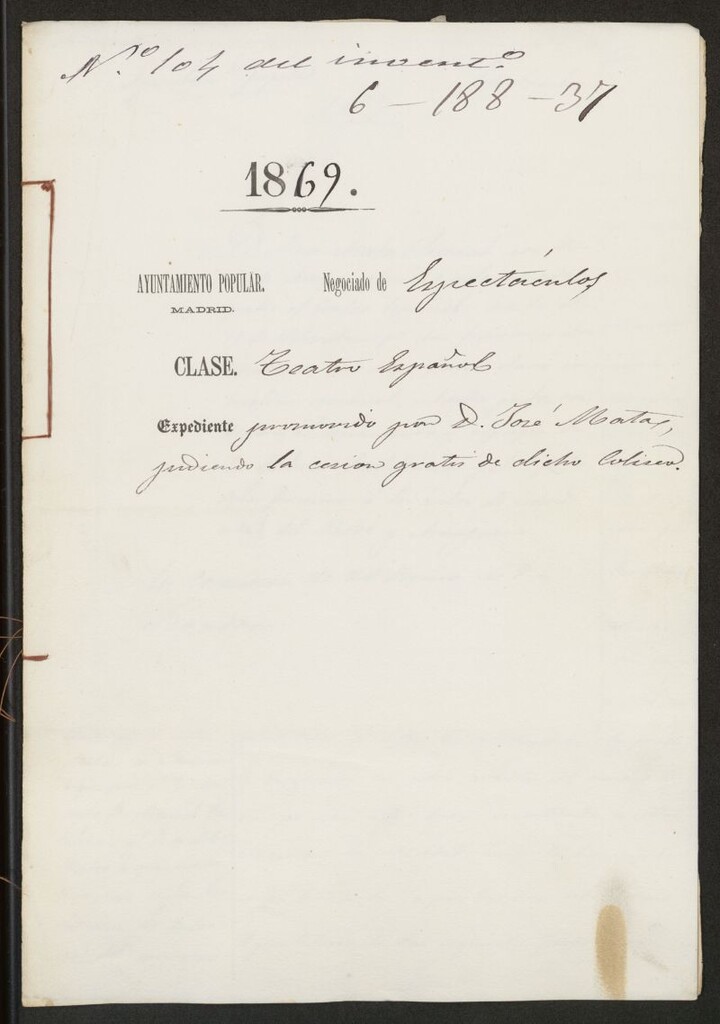 N.º 104 del invent.º
6 - 188 - 37
1869.
AYUNTAMIENTO POPULAR. Negociado de Espectáculos
MADRID.
CLASE. Teatro Español
Expediente promovido por D. José Mata,
pidiendo la cesion gratis de dicho Coliseo.